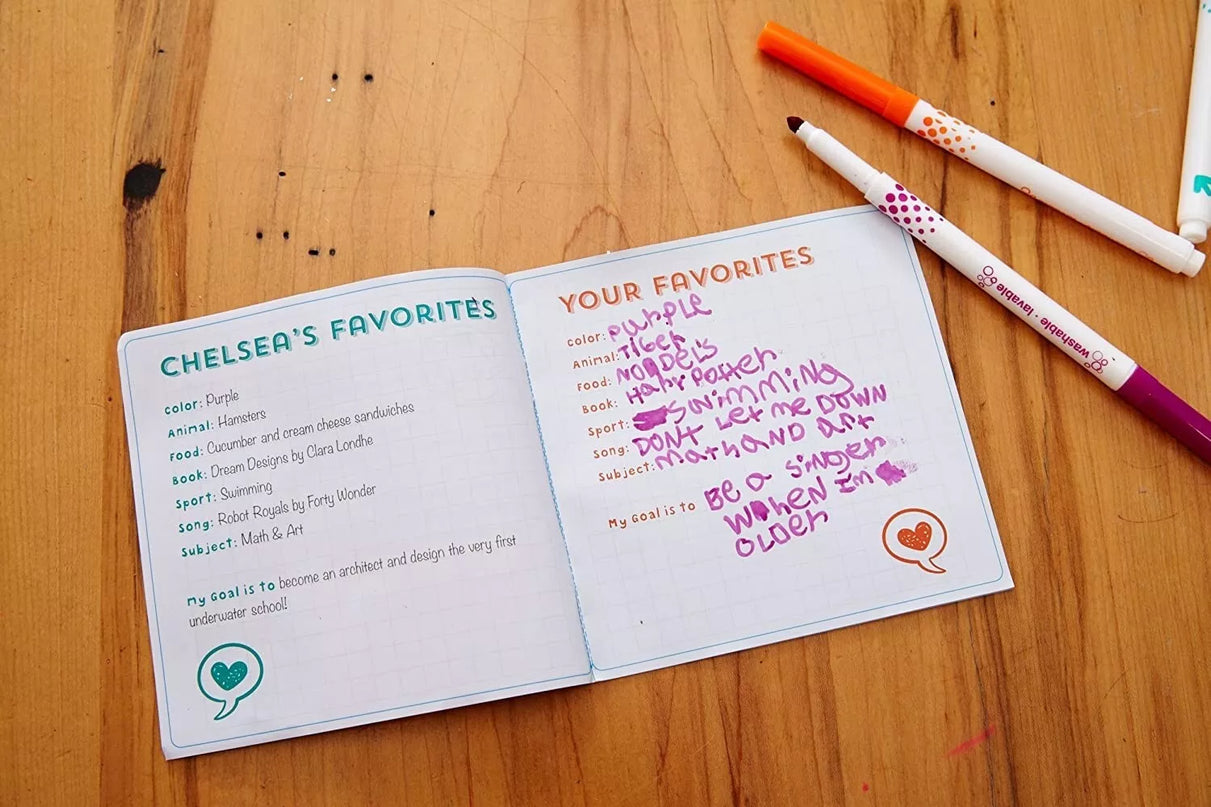 CHELSEA'S FAVORITES
Color: Purple
Animal: Hamsters
Food: Cucumber and cream cheese sandwiches
Book: Dream Designs by Clara Londhe
Sport: Swimming
Song: Robot Royals by Forty Wonder
Subject: Math & Art
My Goal is to become an architect and design the very first
underwater school!
YOUR FAVORITES
Color: Purple
Animal: Tiger
Food: NOODELS
Book: Hary Potter
Sport: Swimming
Song: DONT LeT me DOWN
Subject: math AND ART
My Goal is to Be a SiNGer
WHen Im
OLDer
washable • lavable